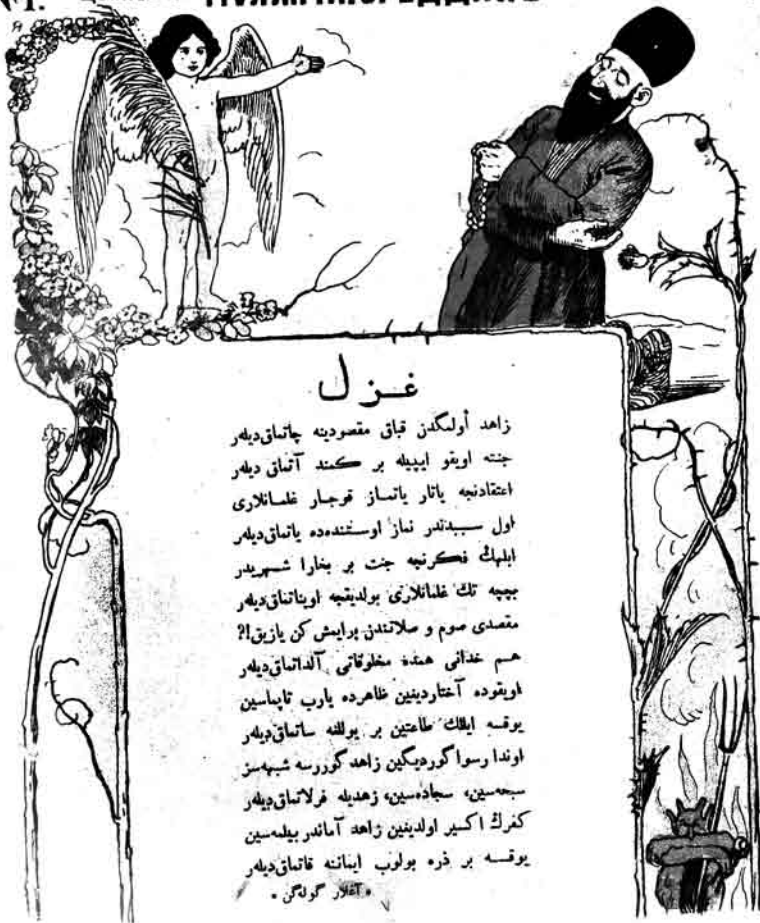 №1.
غـزل
زاهد أولمگدن قباق مقصودینه چاتماق‌دیلەر
جنته اویقو ایپیله بر کمند آتماق دیلەر
اعتقادنجه یاتار یاتماز قوجار غلمانلاری
اول سببدندر نماز اوستنده‌ده یاتماق‌دیلەر
ابلهڭ فکرنجه جنت بر بخارا شهریدر
بچه تڭ غلمانلاری بولدیقجه اویناتماق‌دیلەر
مقصدی صوم و صلاتندن برایمش کن یازیق!؟
هم خدانی همده مخلوقاتی آلداتماق‌دیلەر
اویقوده آختاردیغین ظاهرده یارب تاپماسین
یوقسه ایللڭ طاعتین بر پوللغه ساتماق‌دیلەر
اوندا رسوا گوردیگین زاهد گوررسه شبهه‌سز
سبحه‌سین، سجاده‌سین، زهدیله فرلاتماق‌دیلەر
کفرڭ اکسیر اولدیغین زاهد آماندر بیلمه‌سین
یوقسه بر ذره بولوب ایماننه قاتماق‌دیلەر
• آغلار گولەگن •